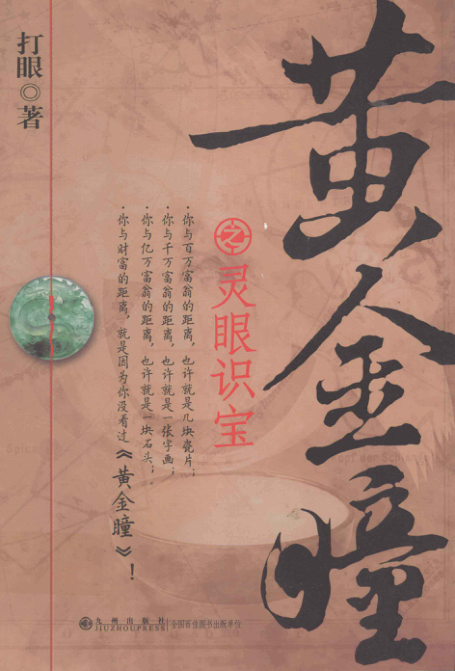 黄金瞳
之灵眼识宝
打眼◎著
·你与百万富翁的距离,也许就是几块瓷片;
·你与千万富翁的距离,也许就是一张字画;
·你与亿万富翁的距离,也许就是一块石头;
·你与财富的距离,就是因为你没看过《黄金瞳》!
九州出版社
JIUZHOUPRESS
全国百佳图书出版单位